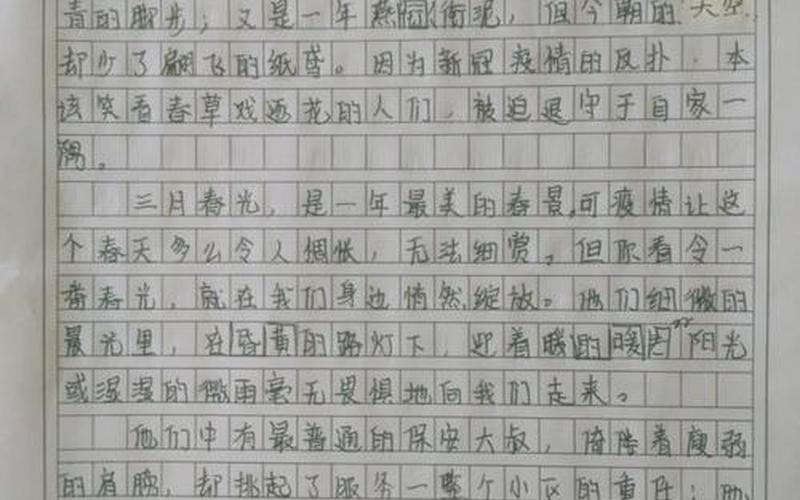 青的脚步；又是一年燕衔泥，但今朝的天空
却少了翩飞的纸鸢。因为新冠疫情的反扑，本
该笑看春草戏逐花的人们，被迫退守于自家一
隅。
三月春光，是一年最美的春景，可疫情让这
个春天多么令人惆怅，无法细赏。但你看令一
番春光，就在我们身边悄然绽放。他们细微的
晨光里，在昏黄的路灯下，迎着暖的暖阳光
或湿湿的微雨毫无畏惧地向我们走来。
他们中有最普通的保安大叔，倚膀着瘦弱
的肩膀，却挑起了服务一整个小区的重任；